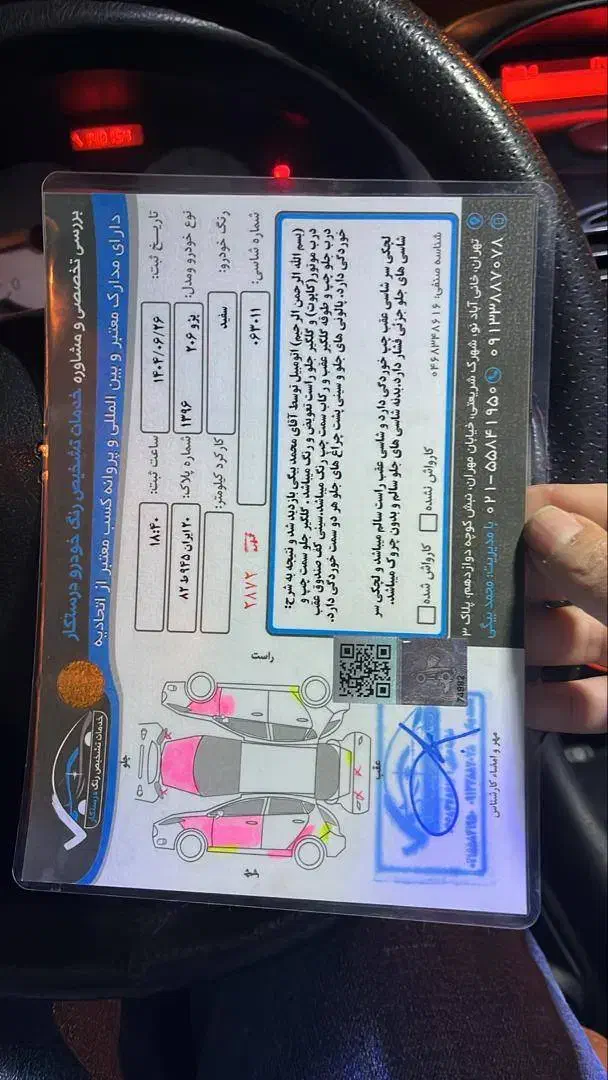 بررسی تخصصی و مشاوره خدمات تشخیص رنگ خودرو درستکار
دارای مدارک معتبر و بین المللی و پروانه کسب معتبر از اتحادیه
خدمات تشخیص رنگ درستکار
تاریخ ثبت:
۱۴۰۴/۰۶/۲۶
ساعت ثبت:
۱۸:۴۰
نوع خودرو ومدل:
پژو ۲۰۶ ۱۳۹۶
شماره پلاک:
۲۰ایران ۹۴۵ط ۸۲
رنگ خودرو:
سفید
کارکرد کیلومتر:
شماره شاسی:
۰۶۳۰۱۱
۲۸۷۲
(بسم الله الرحمن الرحیم) اتومبیل توسط آقای محمد بیگی بازدید شد و نتیجه به شرح:
درب موتور(کاپوت) و گلگیر جلو راست تعویض و رنگ میباشد. گلگیر جلو سمت چپ و
درب جلو چپ و طوقه گلگیر عقب و رکاب سمت چپ رنگ میباشد.سینی کف صندوق عقب
خوردگی دارد. پالونی های جلو و سینی پشت چراغ های جلو هر دو سمت خوردگی دارد.
لچکی سر شاسی عقب چپ خوردگی دارد و شاسی عقب راست سالم میباشد و لچکی سر
شاسی های جلو جزئی فشار دارد.بدنه شاسی های جلو سالم و بدون چروک میباشد.
شناسه صنفی: ۰۴۶۸۳۴۸۶۱۶
کارواش نشده
کارواش شده
راست
جلو
عقب
چپ
74982
مهر و امضاء کارشناس
تهران، خانی آباد نو، شهرک شریعتی، خیابان مهران، نبش کوچه دوازدهم، پلاک ۳
۰۹۱۲۳۸۸۷۰۷۸ ۰۲۱-۵۵۸۴۱۹۵۰ با مدیریت: محمد بیگی